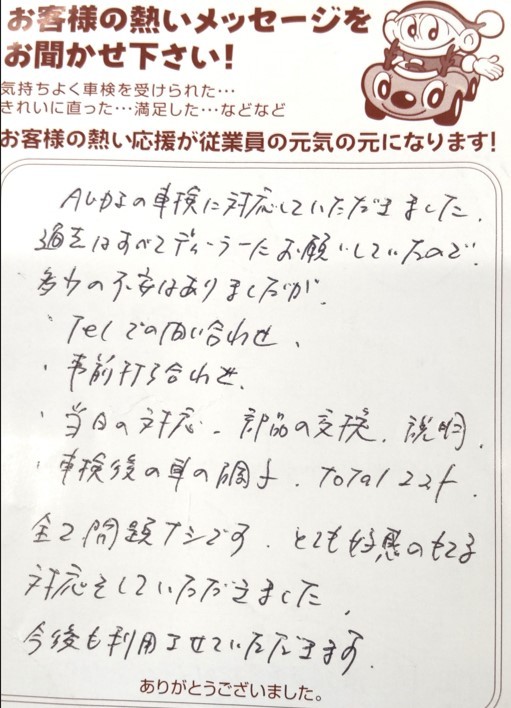 お客様の熱いメッセージを
お聞かせ下さい!
気持ちよく車検を受けられた…
きれいに直った…満足した…などなど
お客様の熱い応援が従業員の元気の元になります!
の車検に対応していただきました.
過去はすべてディーラーにお願いしていたので.
多少の不安はありましたが.
・Telでの問い合わせ.
・事前打ち合わせ.
・当日の対応. 部品の交換. 説明.
・車検後の車の調子. Totalコスト.
全て問題ナシです. とても好感のもてる
対応をしていただきました.
今後も利用させていただきます.
ありがとうございました。